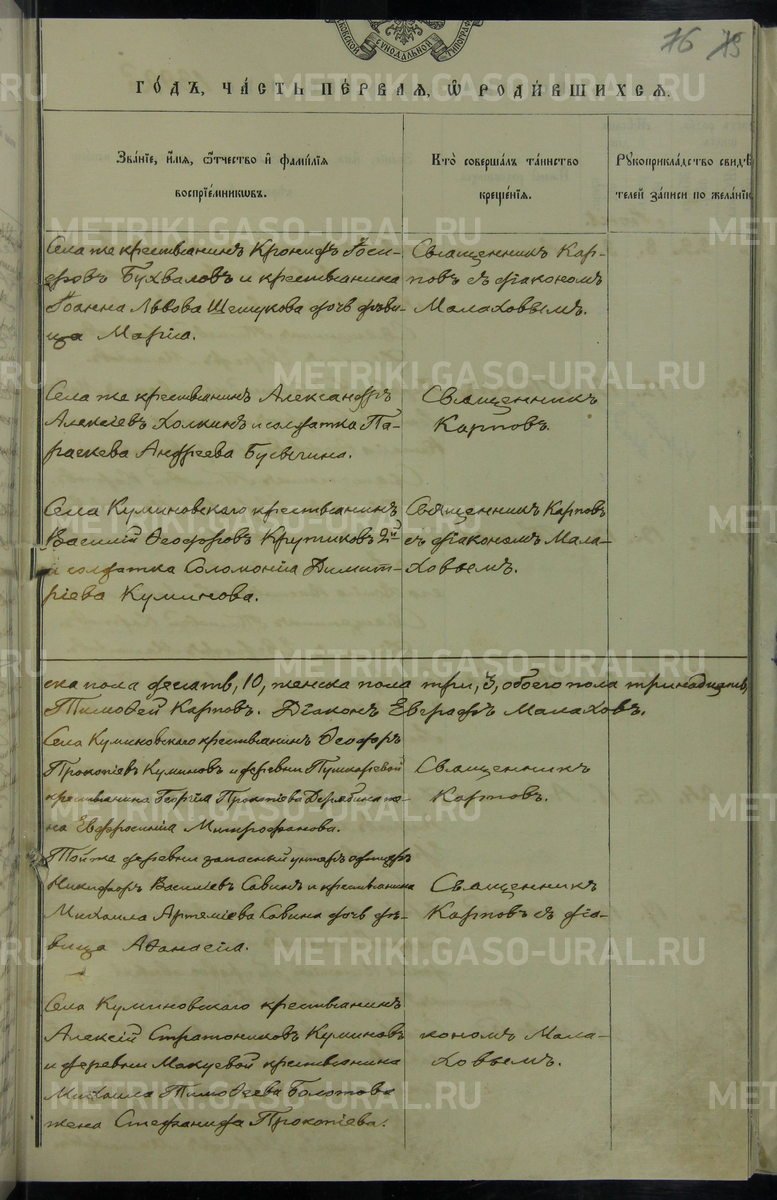 МОСКОВСКОЙ СѴНОДАЛЬНОЙ ТИПОГРАФ
76 75
ГО́ДЪ, ЧА́СТЬ ПЕ́РВАѦ, Ѿ РОДИ́ВШИХСѦ.
Зва́нїе, и́мѧ, ѻ҆́тчество и҆ фами́лїѧ
воспрїе́мникѡвъ.
Кто̀ соверша́лъ та́инство
креще́нїѧ.
Рꙋкоприкла́дство свидѣ́-
телей за́писи по жела́нїю
Села же крестьянинъ Кронидъ Іоси-
фовъ Бухваловъ и крестьянина
Іоанна Львова Шешукова дочь дѣви-
ца Марія.
Священникъ Кар-
повъ съ діакономъ
Малаховымъ.
Села же крестьянинъ Александръ
Алексіевъ Холкинъ и солдатка Па-
раскева Андреева Бусыгина.
Священникъ
Карповъ.
Села Куминовскаго крестьянинъ
Василій Ѳеодоровъ Крутиковъ 2й
и солдатка Соломонія Димит-
ріева Куминова.
Священникъ Карповъ
съ діакономъ Мала-
ховымъ.
ска пола десять, 10, женска пола три, 3, обоего пола тринадцать,
Тимоѳей Карповъ. Діаконъ Евграфъ Малаховъ.
Села Куминовскаго крестьянинъ Ѳеодоръ
Прокопіевъ Куминовъ и деревни Пушкаревой
крестьянина Георгія Прокопіева Дерябина же-
на Евфросинія Митрофанова.
Священникъ
Карповъ.
Той же деревни запасный унтеръ офицеръ
Никифоръ Василіевъ Савинъ и крестьянина
Михаила Артеміева Савина дочь дѣ-
вица Аѳанасія.
Священникъ
Карповъ съ діа-
Села Куминовскаго крестьянинъ
Алексій Стратониковъ Куминовъ
и деревни Макуевой крестьянина
Михаила Тимоѳеева Болотова
жена Стефанида Прокопіева.
кономъ Мала-
ховымъ.
METRIKI.GASO-URAL.RU